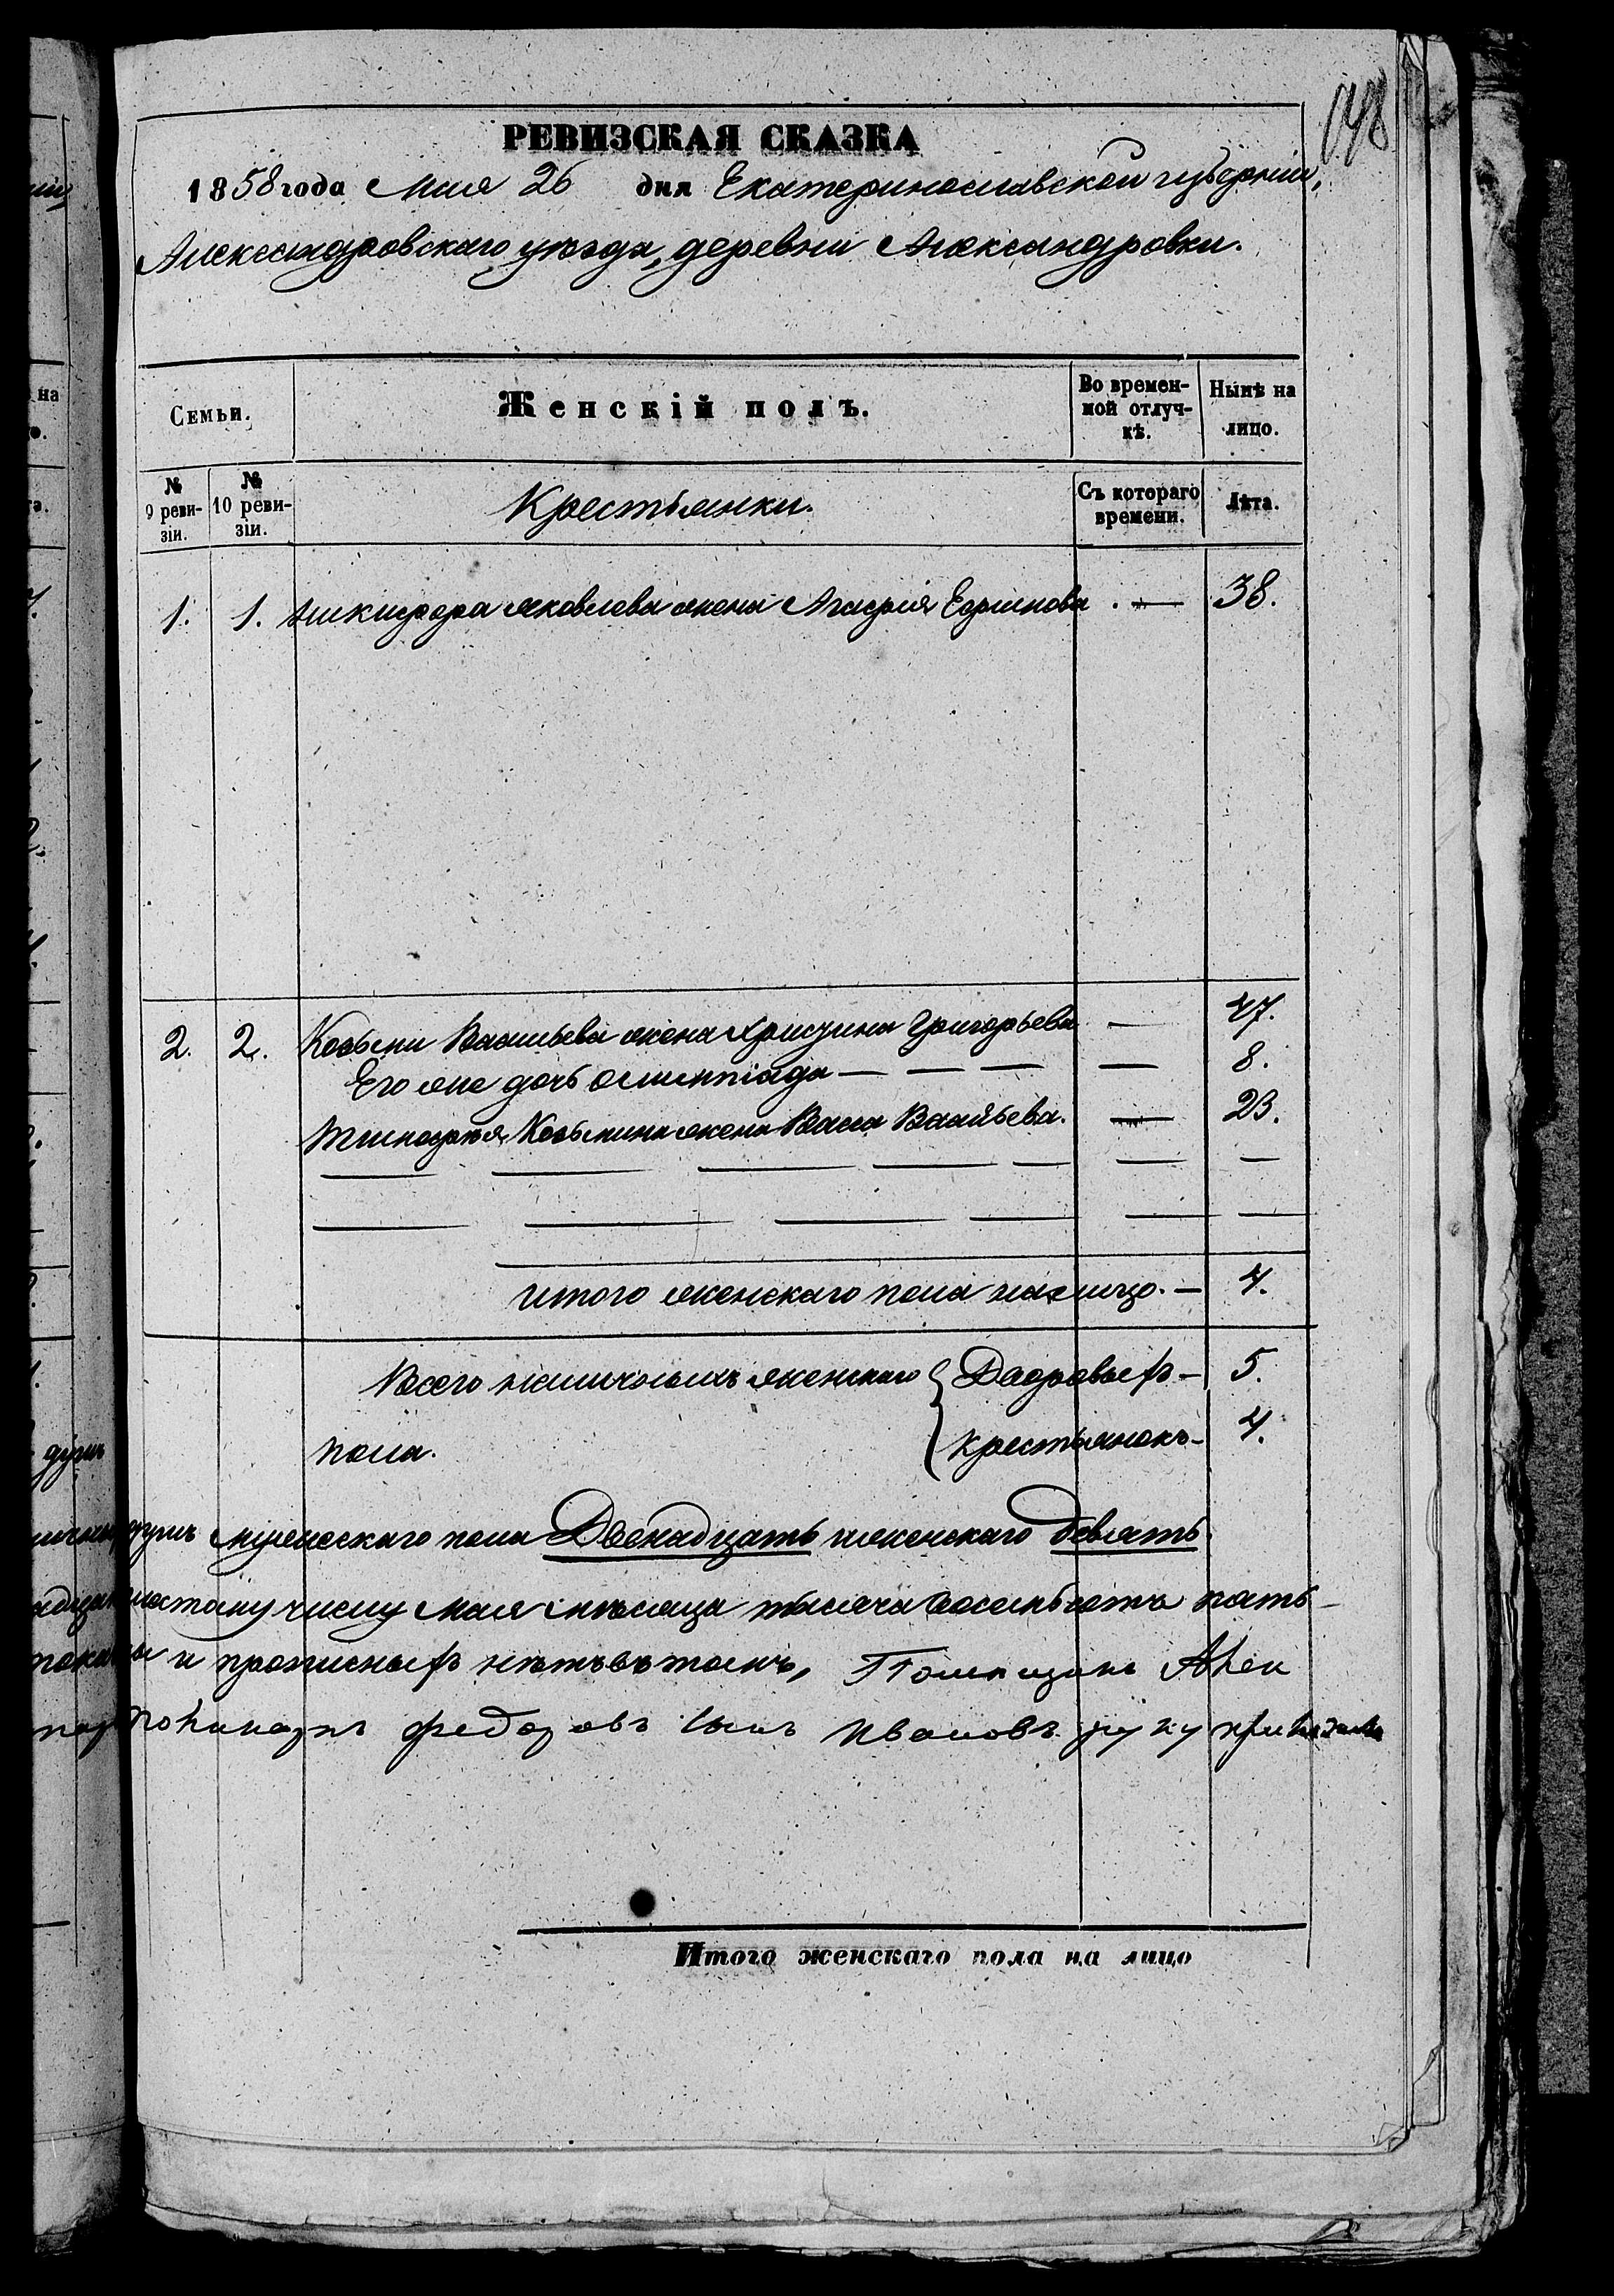 148
РЕВИЗСКАЯ СКАЗКА
1858 года Мая 26 дня Екатеринославской губерніи,
Александровскаго уѣзда, деревни Александровки.
Семьи.
Женскій полъ.
Во времен-
ной отлуч-
кѣ.
Нынѣ на
лицо.
№
9 реви-
зіи.
№
10 реви-
зіи.
Крестьянки.
Съ котораго
времени.
Лѣта.
1. 1. Никифора Яковлева жена Агафія 38.
2. 2. Козьмы Васильева жена Христина Григорьева — 47.
Его же дочь Олимпіада — — — — 8.
Тимофея Козьмина жена Васса Васильева. — 23.
Итого женскаго пола налицо. — 4.
Всего наличныхъ женскаго { Дворовыхъ — 5.
пола. Крестьянокъ — 4.
душъ мужескаго пола Двенадцать женскаго девять
числу Мая мѣсяца тысяча восемьсотъ пять-
и прописныхъ нѣтъ въ томъ, Помещикъ
федоровъ сынъ Ивановъ руку приложилъ
Итого женскаго пола на лицо